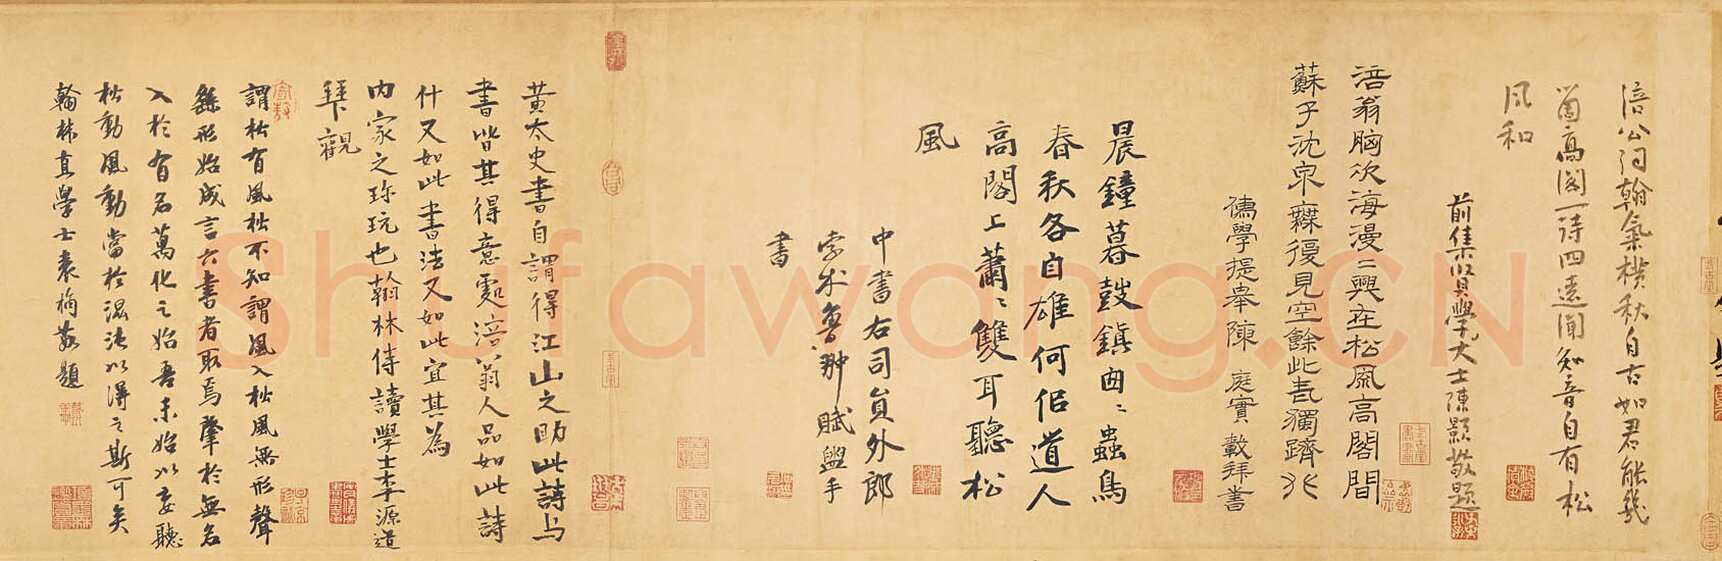 涪公詞翰氣橫秋自古如君能幾
留高閣一詩四遠聞知音自有松
風和
前集賢學大士陳顥敬題
涪翁胸次海漫〻興在松風高閣間
蘇子沈泉寐復見空餘此
儒學提舉陳庭實載拜書
晨鐘暮鼓鎮囪〻蟲鳥
春秋各自雄何似道人
高閣上蕭〻雙耳聽松
風
中書右司員外郎
孛朮魯翀賦盥手
書
黃太史書自謂得江山之助此詩與
書皆其得意處涪翁人品如此詩
什又如此書法又如此宜其為
內家之珍玩也翰林侍讀學士李源道
拜觀
謂松有風松不知謂風入松風無形聲
繇形始成言六書者取焉肇於無名
入於有名萬化之始吾未始以妄聽
松動風動當於混沌以得之斯可矣
翰林直學士袁桷敬題
Shufawang.CN